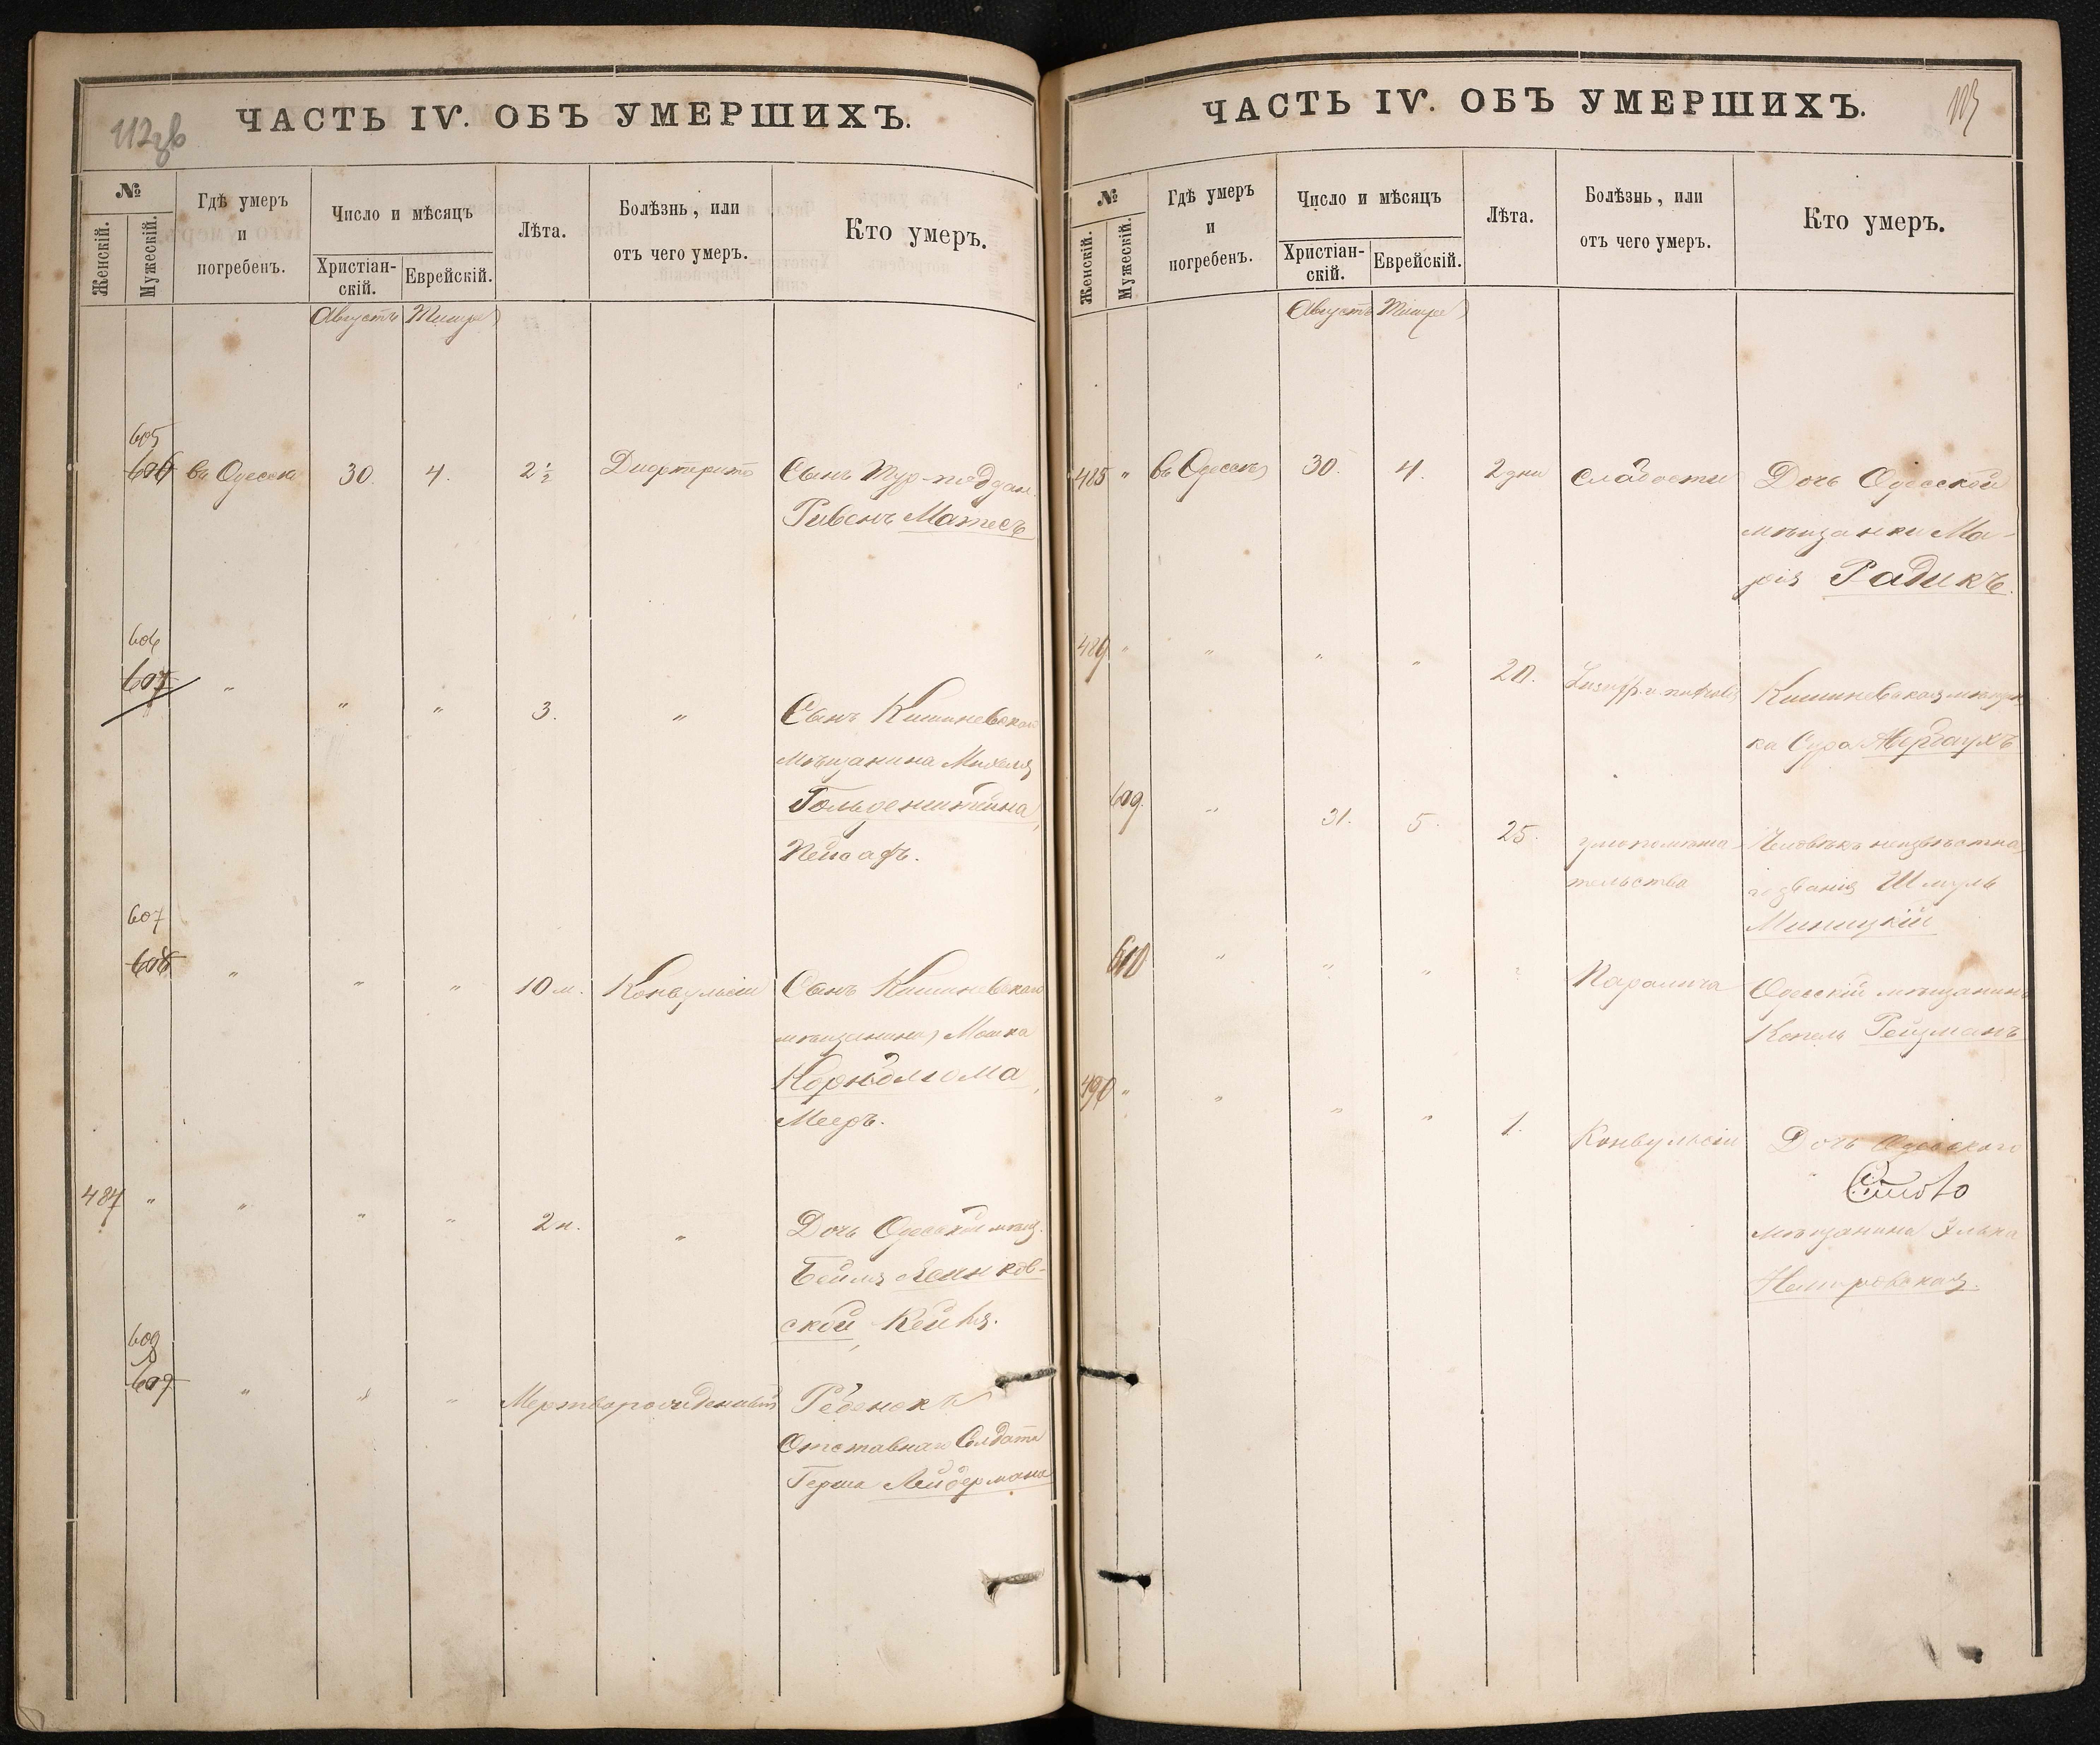 112 об
ЧАСТЬ IV. ОБЪ УМЕРШИХЪ.
№
Женскій.
Мужескій.
Гдѣ умеръ
и
погребенъ.
Число и мѣсяцъ
Христіан-
скій.
Еврейскій.
Лѣта.
Болѣзнь, или
отъ чего умеръ.
Кто умеръ.
Августъ Тишре
605
606 въ Одессѣ 30. 4. 2 1/2 Сынъ Тур-поддан.
Рувенъ Матесъ
606
607 " " " 3. " Сынъ Кишиневскаго
мѣщанина Михеля
Гольденштейна,
607
608 " " " 10 м. Конвульсіи Сынъ Кишиневскаго
мѣщанина Мошка
Мееръ.
487 " " " " " Дочь Одесской мѣщ.
Бейля
ской,
608
609 " " " Мертворожденный Ребенокъ
Отставнаго Солдата
Герша Лейдермана
113
ЧАСТЬ IV. ОБЪ УМЕРШИХЪ.
№
Женскій.
Мужескій.
Гдѣ умеръ
и
погребенъ.
Число и мѣсяцъ
Христіан-
скій.
Еврейскій.
Лѣта.
Болѣзнь, или
отъ чего умеръ.
Кто умеръ.
Августъ Тишре
" въ Одессѣ 30. 4. 2 дни Слабости Дочь Одесской
мѣщанки Ма-
рія Радикъ.
489 " " " " Кишиневская мѣщан
ка Сура
609. " 31. 5. 25. умопомѣша-
тельства
Человѣкъ неизвѣстна
го званія Шмуль
Миницкій
610 " " " Паралича Одесскій мѣщанинъ
Копель Рейзманъ
490 " " " " 1. Конвульсіи Дочь Одесскаго
мѣщанина Элька
Немировская.